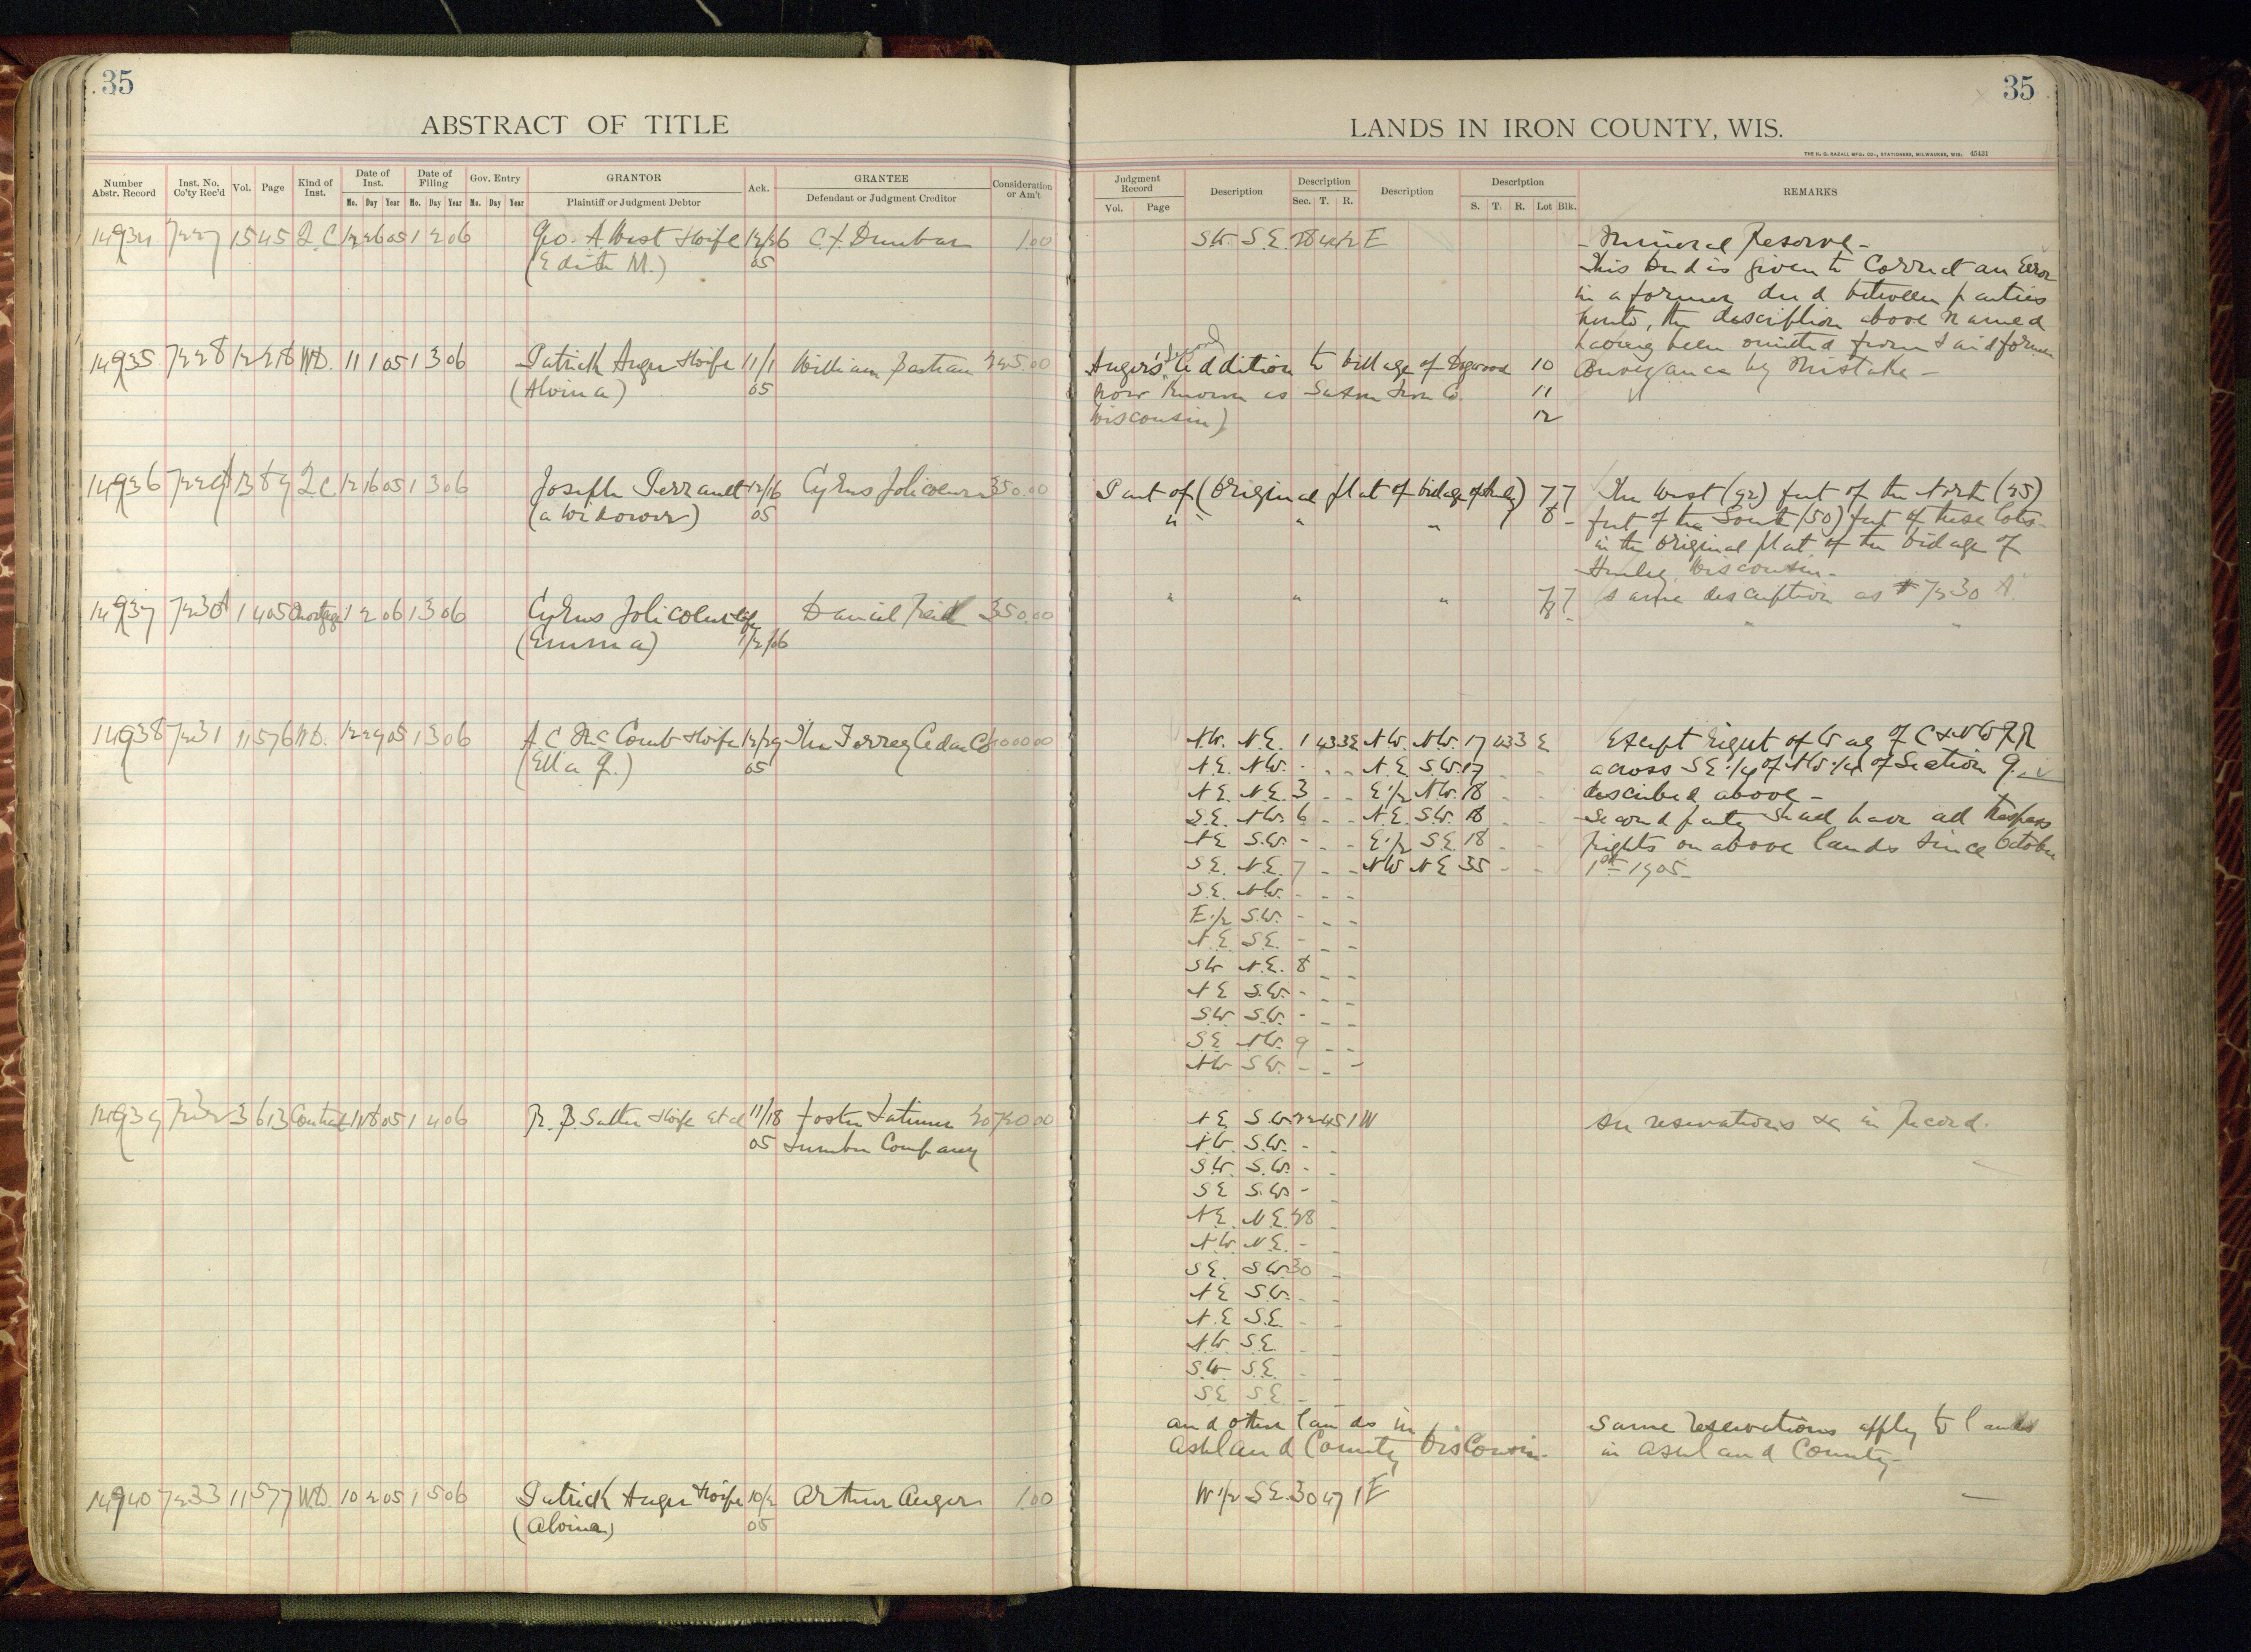 35
ABSTRACT OF TITLE
Number Abstr. Record
Inst. No. Co'ty Rec'd
Vol.
Page
Kind of Inst.
Date of Inst.
Mo. Day Year
Date of Filing
Mo. Day Year
Gov. Entry
Mo. Day Year
GRANTOR
Plaintiff or Judgment Debtor
Ack.
GRANTEE
Defendant or Judgment Creditor
Consideration or Am't
14934 7227 15 45 Q.C 12 26 05 1 2 06 Geo. A. West & wife 12/26 C. F. Dunbar 1.00
(Edith M.) 05
14935 7228 12 W.D. 11 1 05 1 3 06 Patrick Auger & wife 11/1 William Bastian 225.00
(Alvina) 05
14936 13 89 Q.C. 12 16 05 1 3 06 Joseph Perrault 12/16 Cyrus Jolicoeur 350.00
(a widower) 05
14937 7230 1 405 Mortgage 1 2 06 1 3 06 Cyrus Jolicoeur & wife Daniel Reid 350.00
(Emma) 1/2/06
14938 7231 11 576 W.D. 12 29 05 1 3 06 A. C. McComb & wife 12/29 The Torrey Cedar Co
(Ella J.) 05
14939 7232 3 613 Contract 11 18 05 1 4 06 & wife et al 11/18 Foster Latimer
05 Lumber Company
14940 7233 11 577 W.D. 10 2 05 1 5 06 Patrick Auger & wife 10/2 Arthur Auger 1.00
(Alvina) 05
35
LANDS IN IRON COUNTY, WIS.
THE H. G. RAZALL MFG. CO., STATIONERS, MILWAUKEE, WIS. 45431
Judgment Record
Vol. Page
Description
Description
Sec. T. R.
Description
Description
S. T. R. Lot Blk.
REMARKS
S.W. S.E. 28 42 E
- Mineral Reserve -
This deed is given to correct an error
in a former deed between parties
hereto, the description above named
having been omitted from said former
Conveyance by Mistake -
Second
Auger's Addition to village of Dogwood 10
now known as Saxon Iron Co. 11
Wisconsin) 12
Part of (Original plat of village of Hurley) 7 7
" " " 8 -
The West (92) feet of the North (25)
feet of the South (50) feet of these lots
in the original plat of the village of
Hurley, Wisconsin -
" " " 7 7
8 -
same description as # 7230 A.
" "
N.W. N.E. 1 43 3 E N.W. N.W. 17 43 3 E
N.E. N.W. - - - N.E. S.W. 17 - -
N.E. N.E. 3 - - E.1/2 N.W. 18 - -
S.E. N.W. 6 - - N.E. S.W. 18 - -
N.E. S.W. - - - E.1/2 S.E. 18 - -
S.E. N.E. 7 - - N.W. N.E. 35 - -
S.E. N.W. - - -
E.1/2 S.W. - - -
N.E. S.E. - - -
S.W. N.E. 8 - -
N.E. S.W. - - -
S.W. S.W. - - -
S.E. N.W. 9 - -
N.W. S.W. - - -
Except right of Way of C & N W R R
across S.E. 1/4 of N.W. 1/4 of Section 9
described above -
Second party shall have all trespass
rights on above lands since October
1st 1905 -
N.E. S.W. 22 45 1 W
N.W. S.W. - -
S.W. S.W. - -
S.E. S.W. - -
N.E. N.E. 28 -
N.W. N.E. - -
S.E. S.W. 30 -
N.E. S.W. - -
N.E. S.E. - -
N.W. S.E. - -
S.W. S.E. - -
S.E. S.E. - -
and other lands in
Ashland County Wisconsin -
See reservations &c in Record.
Same reservations apply to lands
in Ashland County -
W 1/2 S.E. 30 47 1 E